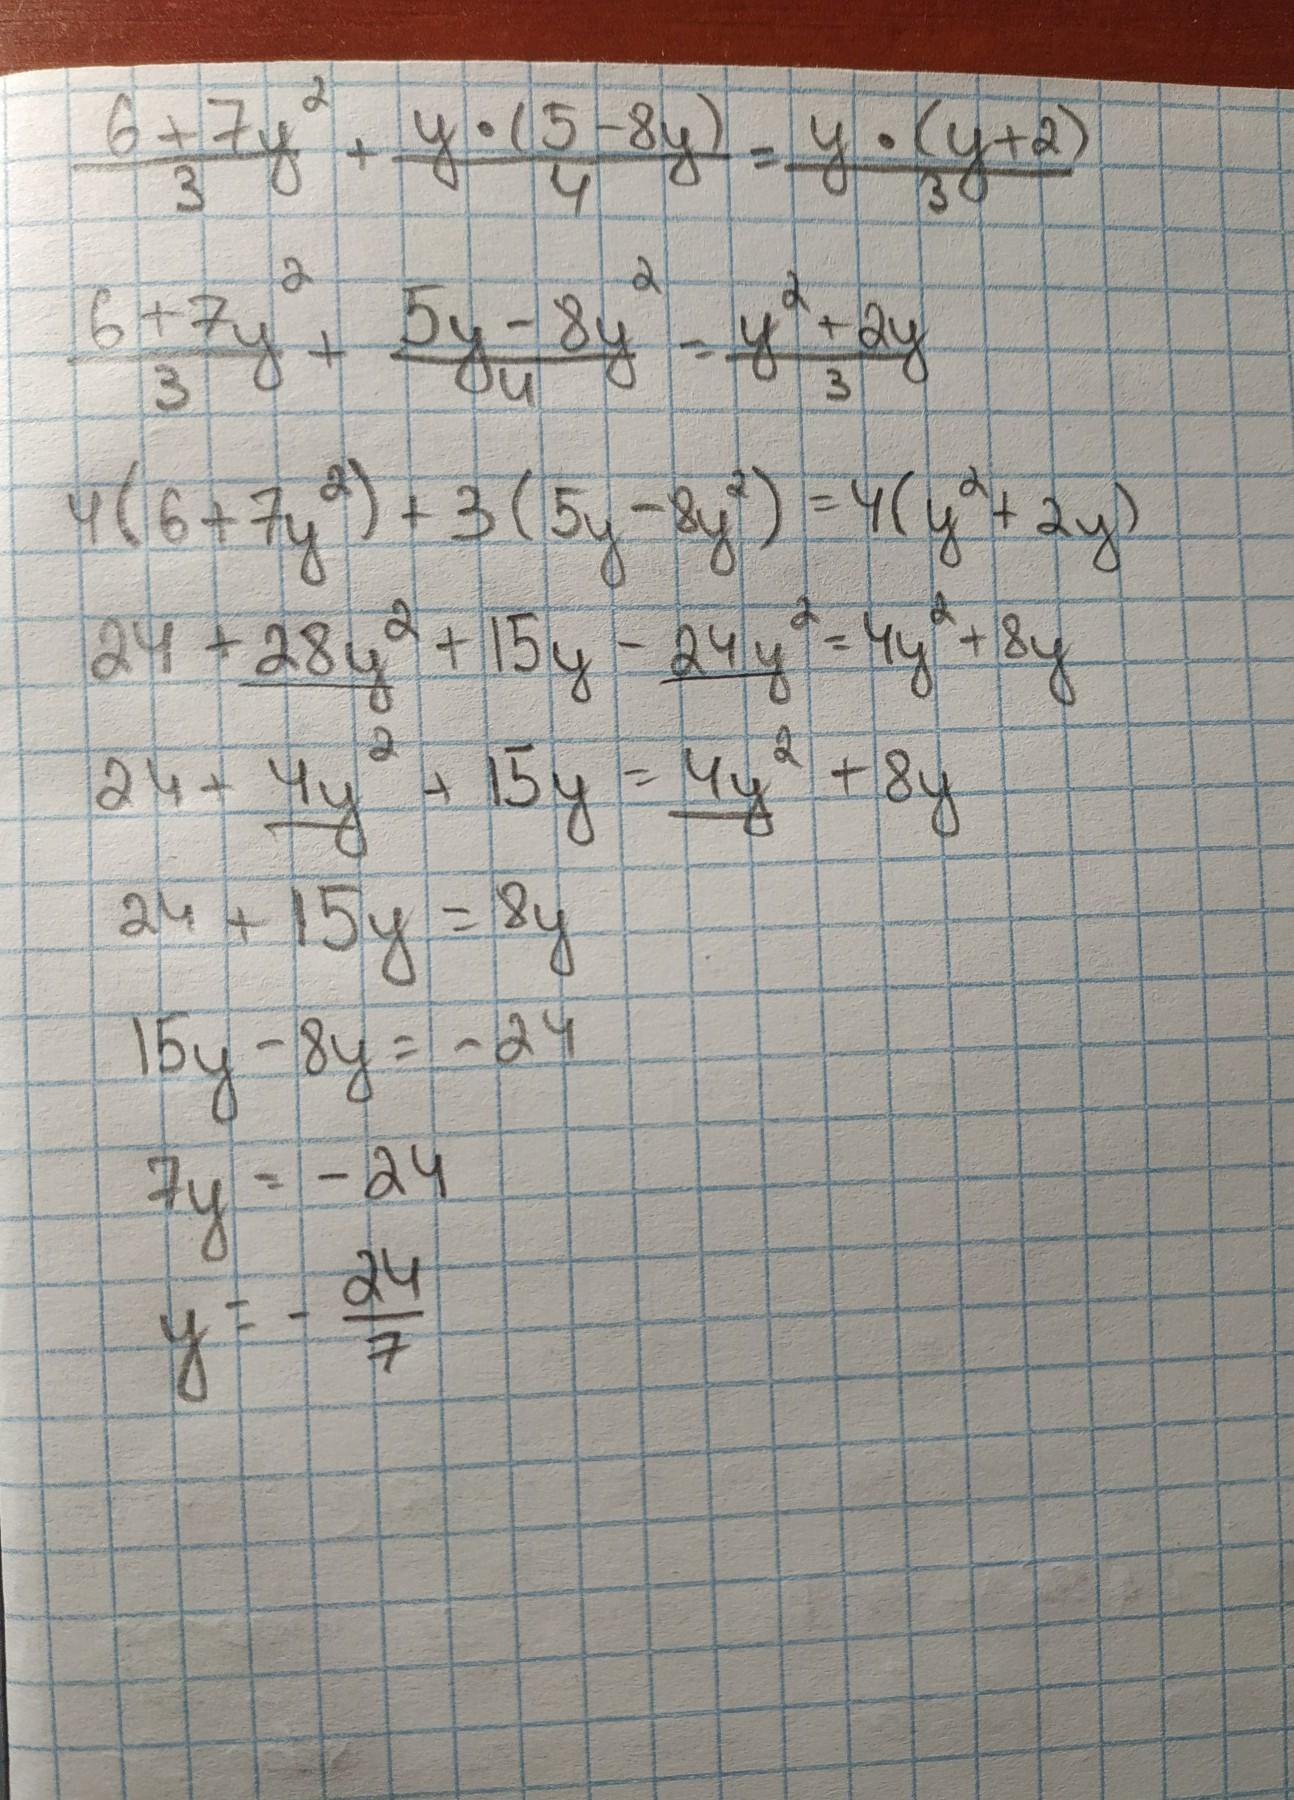 (6+7y²)/3 + y·(5-8y)/4 = y·(y+2)/3
(6+7y²)/3 + (5y-8y²)/4 = (y²+2y)/3
4(6+7y²)+3(5y-8y²)=4(y²+2y)
24+28y²+15y-24y²=4y²+8y
24+4y²+15y=4y²+8y
24+15y=8y
15y-8y=-24
7y=-24
y=-24/7